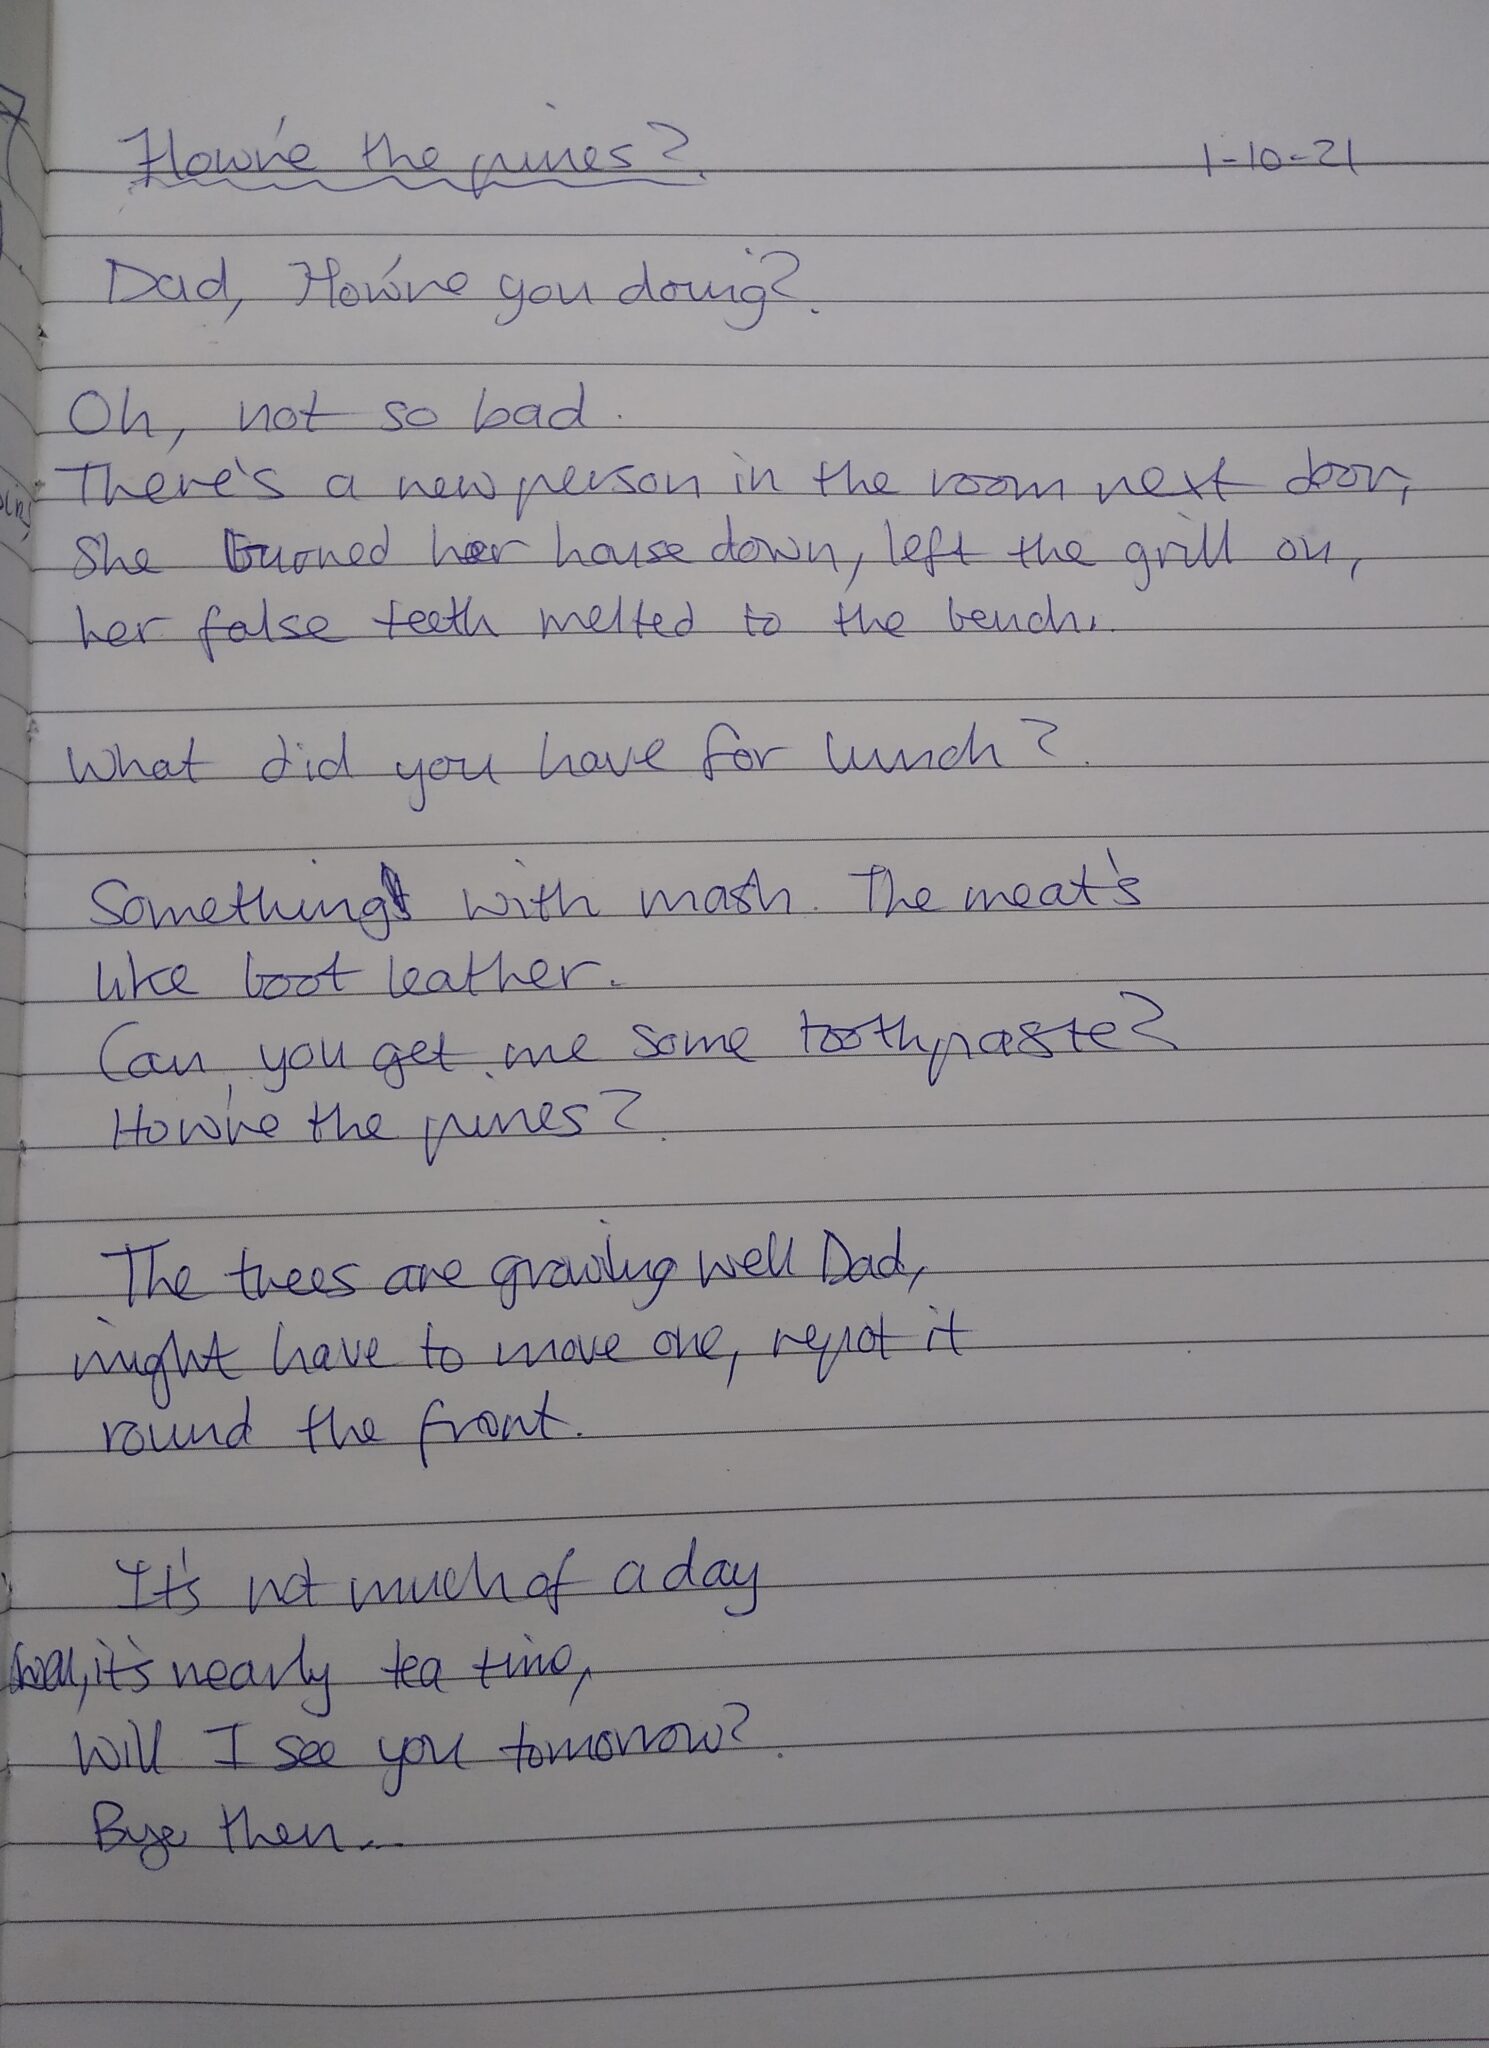 How're the pines?
1-10-21
Dad, How're you doing?
Oh, not so bad.
There's a new person in the room next door,
She burned her house down, left the grill on,
her false teeth melted to the bench.
What did you have for lunch?
Something with mash. The meat's
like boot leather.
Can you get me some toothpaste?
How're the pines?
The trees are growing well Dad,
might have to move one, repot it
round the front.
It's not much of a day
well, it's nearly tea time,
Will I see you tomorrow?
Bye then...